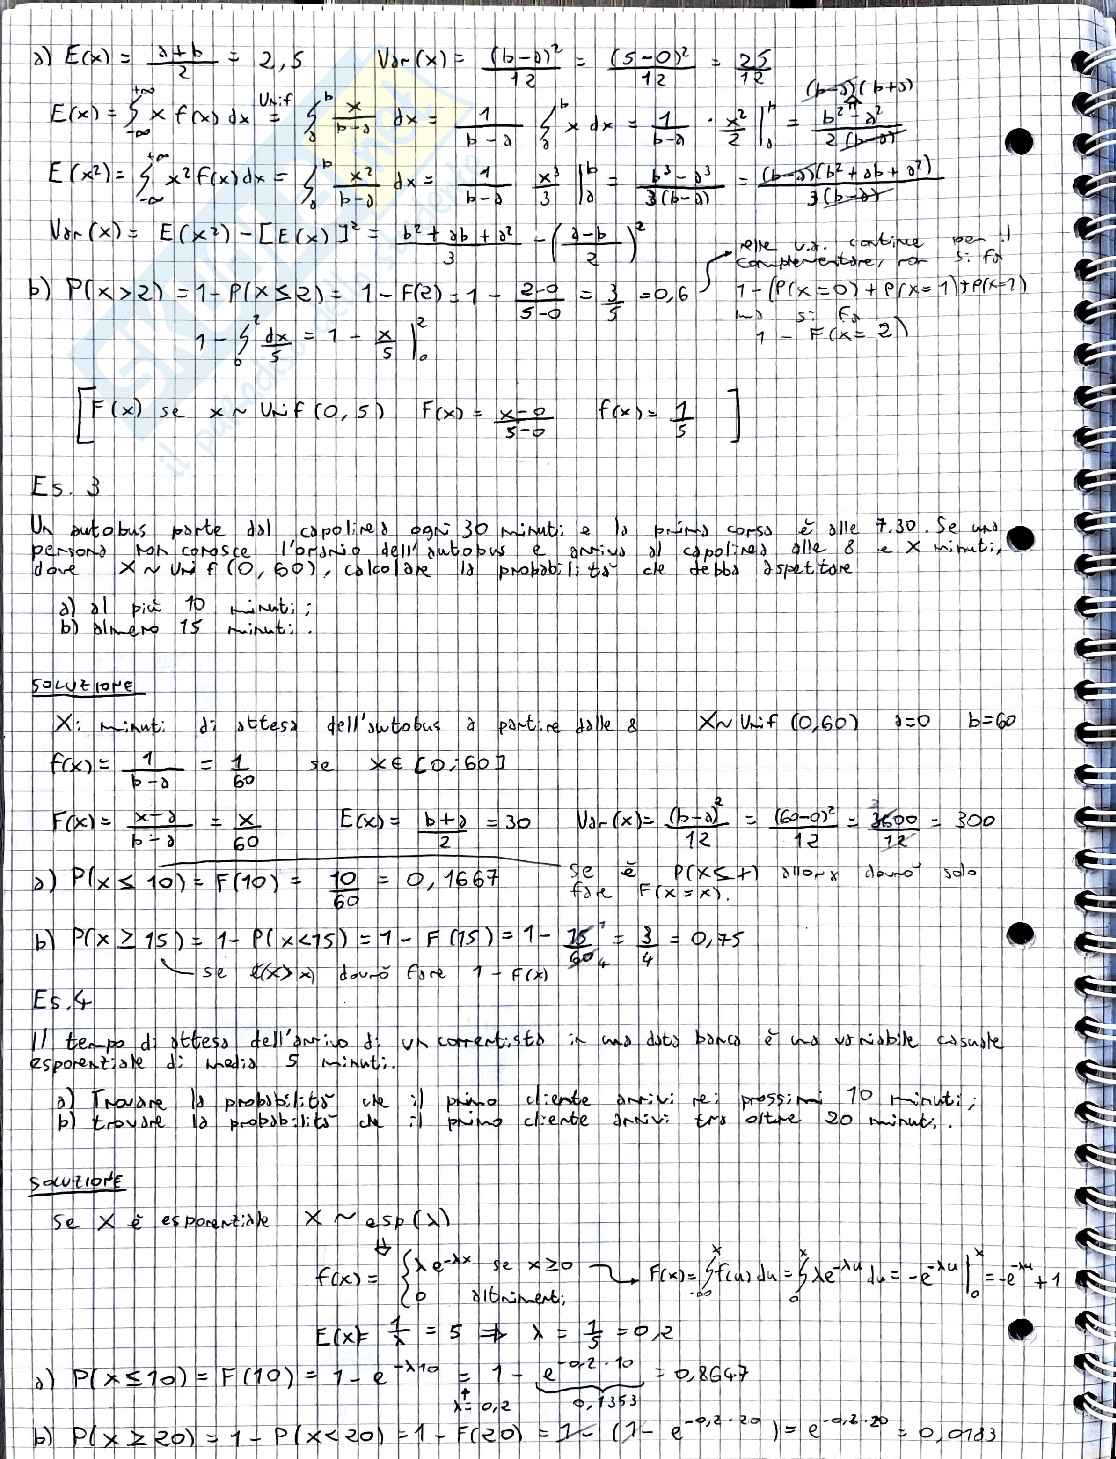 a) E(x) = a+b/2 = 2,5   Var(x) = (b-a)²/12 = (5-0)²/12 = 25/12
E(x) = ∫_{-∞}^{+∞} x f(x) dx =^{Unif} ∫_a^b x/(b-a) dx = 1/(b-a) ∫_a^b x dx = 1/(b-a) · x²/2 |_a^b = (b²-a²)/2(b-a)   (b-a)(b+a)
E(x²) = ∫_{-∞}^{+∞} x² f(x) dx = ∫_a^b x²/(b-a) dx = 1/(b-a) x³/3 |_a^b = (b³-a³)/3(b-a) = (b-a)(b²+ab+a²)/3(b-a)
Var(x) = E(x²) - [E(x)]² = (b²+ab+a²)/3 - ((a-b)/2)²
nelle v.a. continue per il
complementare, non si fa
b) P(x>2) = 1-P(x≤2) = 1-F(2) = 1 - (2-0)/(5-0) = 3/5 = 0,6   1-(P(x=0)+P(x=1)+P(x=2)
ma si fa
1 - ∫_0^2 dx/5 = 1 - x/5 |_0^2   1 - F(x=2)
[F(x) se x ~ Unif (0,5)   F(x) = (x-0)/(5-0)   f(x) = 1/5]
Es. 3
Un autobus parte dal capolinea ogni 30 minuti e la prima corsa è alle 7.30. Se una
persona non conosce l'orario dell'autobus e arriva al capolinea alle 8 e X minuti,
dove X ~ Unif (0, 60), calcolare la probabilità che debba aspettare
a) al più 10 minuti;
b) almeno 15 minuti.
SOLUZIONE
X: minuti di attesa dell'autobus a partire dalle 8   X~Unif (0,60)   a=0   b=60
f(x) = 1/(b-a) = 1/60   se   x∈[0;60]
F(x) = (x-a)/(b-a) = x/60   E(x) = (b+a)/2 = 30   Var(x) = (b-a)²/12 = (60-0)²/12 = 3600/12 = 300
a) P(x≤10) = F(10) = 10/60 = 0,1667   se è P(x≤+) allora dovrò solo
fare F(x=x).
b) P(x≥15) = 1-P(x<15) = 1-F(15) = 1- 15/60 = 3/4 = 0,75
se P(x>x) dovrò fare 1-F(x)
Es.4
Il tempo di attesa dell'arrivo di un correntista in una data banca è una variabile casuale
esponenziale di media 5 minuti.
a) Trovare la probabilità che il primo cliente arrivi nei prossimi 10 minuti;
b) trovare la probabilità che il primo cliente arrivi tra oltre 20 minuti.
SOLUZIONE
Se X è esponenziale X ~ esp(λ)
f(x) = { λe^{-λx} se x≥0 → F(x) = ∫_{-∞}^x f(u) du = ∫_0^x λe^{-λu} du = -e^{-λu} |_0^x = -e^{-λu} + 1
0 altrimenti
E(x) = 1/λ = 5 ⇒ λ = 1/5 = 0,2
a) P(x≤10) = F(10) = 1-e^{-λ10} = 1 - e^{-0,2·10} = 0,8647
λ=0,2   0,1353
b) P(x≥20) = 1-P(x<20) = 1-F(20) = 1-(1- e^{-0,2·20}) = e^{-0,2·20} = 0,0183